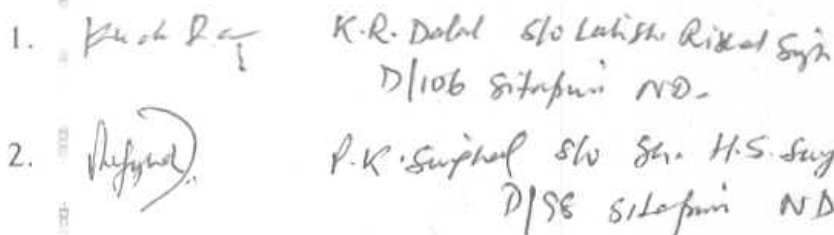 1. K.R. Dalal S/o Late Sh. Risal Singh
D/106 Sitapuri ND.
2. P.K. Singhal S/o Sh. H.S. Sing
D/98 Sitapuri ND